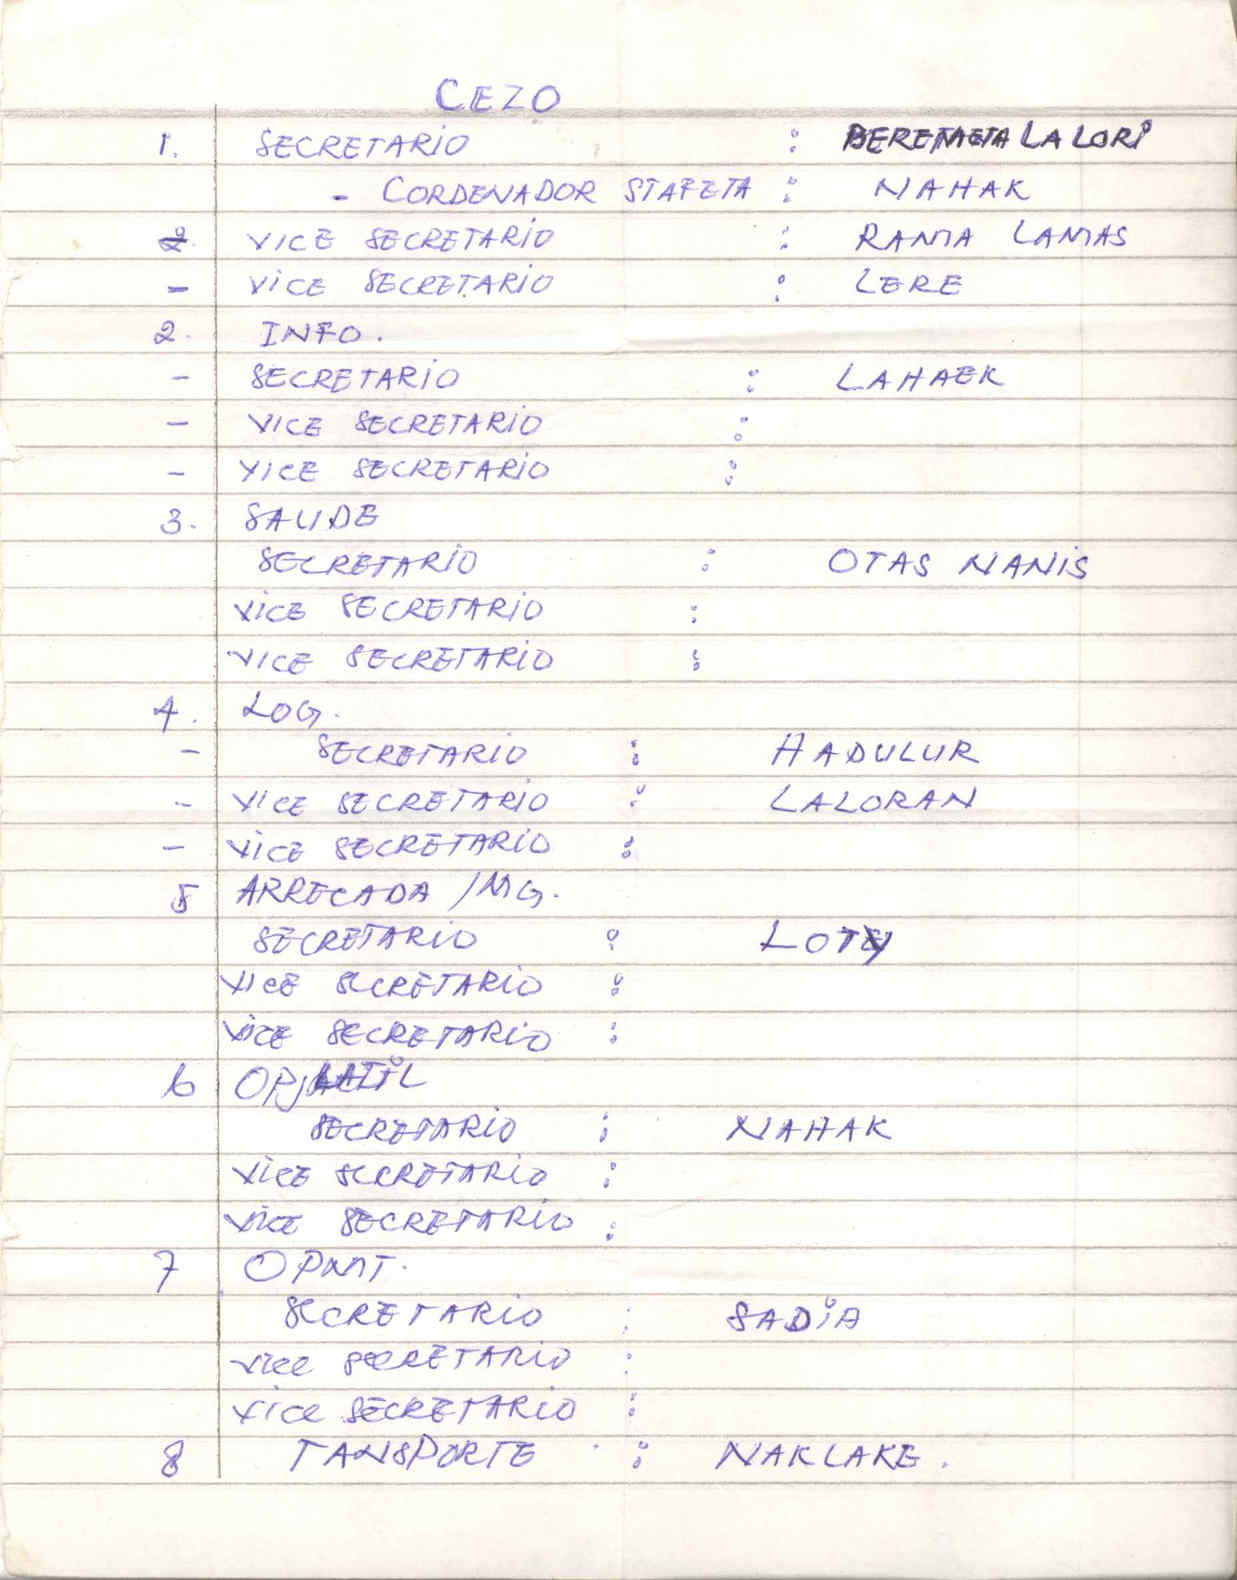 CEZO
1. SECRETARIO : LALORI
- CORDENADOR STAFETA : NAHAK
2. VICE SECRETARIO : RAMA LAMAS
- VICE SECRETARIO : LERE
2. INFO.
- SECRETARIO : LAHAEK
- VICE SECRETARIO :
- VICE SECRETARIO :
3. SAUDE
SECRETARIO : OTAS NANIS
VICE SECRETARIO :
VICE SECRETARIO :
4. LOG.
- SECRETARIO : HADULUR
- VICE SECRETARIO : LALORAN
- VICE SECRETARIO :
5 ARRECADA /MG.
SECRETARIO :
VICE SECRETARIO :
VICE SECRETARIO :
6
SECRETARIO : NAHAK
VICE SECRETARIO :
VICE SECRETARIO :
7 OPMT.
SECRETARIO : SADIA
VICE SECRETARIO :
VICE SECRETARIO :
8 TANSPORTE : NAKLAKE.